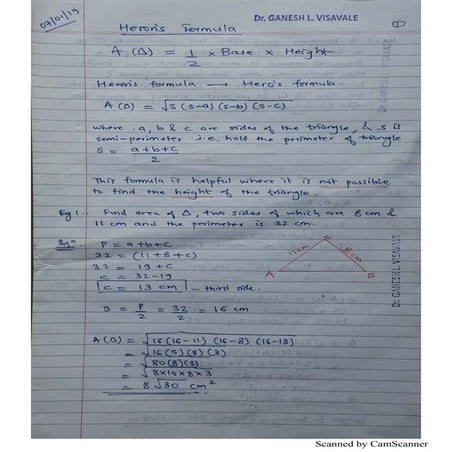 07/01/19
Dr. GANESH L. VISAVALE
1
Heron's Formula
A (Δ) = 1/2 × Base × Height
Heron's formula → Hero's formula.
A (Δ) = √s (s-a) (s-b) (s-c)
where a, b & c are sides of the triangle, & s is
semi-perimeter i.e. half the perimeter of triangle
s = a+b+c/2
This formula is helpful where it is not possible
to find the height of the triangle.
Eg 1. Find area of Δ, two sides of which are 8 cm &
11 cm and the perimeter is 32 cm.
Solⁿ P = a+b+c
32 = (11+8+c)
32 = 19+c
c = 32-19
c = 13 cm — third side.
11 cm
C
8 cm
A
B
s = P/2 = 32/2 = 16 cm
A (Δ) = √16 (16-11) (16-8) (16-13)
= √16 (5) (8) (3)
= √80 (8) (3)
= √8×10×8×3
= 8√30 cm²
Dr. GANESH L. VISAVALE
Dr. GANESH L. VISAVALE
Scanned by CamScanner